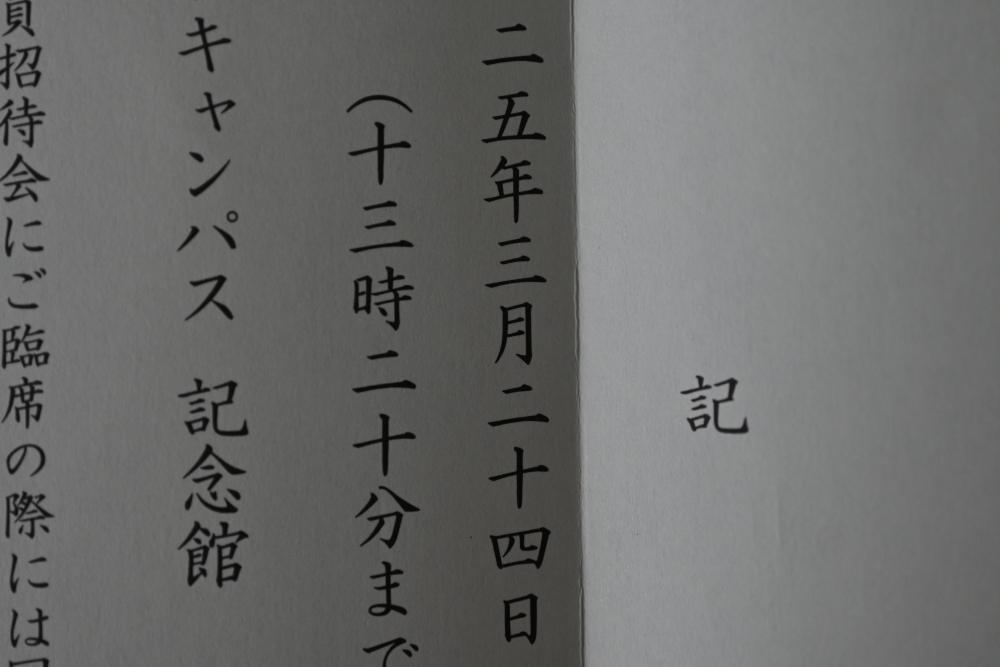 記
二五年三月二十四日
（十三時二十分まで
キャンパス 記念館
招待会にご臨席の際には